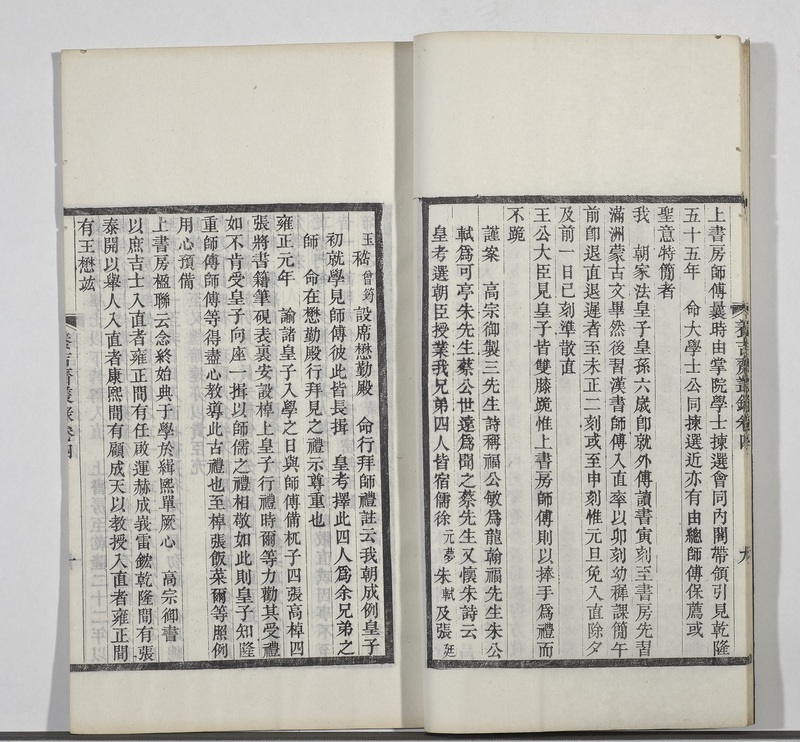 上書房師傅曩時由掌院學士揀選會同內閣帶領引見乾隆
五十五年　命大學士公同揀選近亦有由總師傅保薦或
聖意特簡者
我　朝家法皇子皇孫六歲卽就外傅讀書寅刻至書房先習
滿洲蒙古文畢然後習漢書師傅入直率以卯刻幼稺課簡午
前卽退直退遲者至未正二刻或至申刻惟元旦免入直除夕
及前一日巳刻準散直
王公大臣見皇子皆雙膝跪惟上書房師傅則以捧手爲禮而
不跪
謹案　高宗御製三先生詩稱福公敏爲龍翰福先生朱公
軾爲可亭朱先生蔡公世遠爲聞之蔡先生又懷朱詩云
皇考選朝臣授業我兄弟四人皆宿儒徐元夢朱軾及張廷
養吉齋叢錄卷四
九
玉嵇曾筠設席懋勤殿　命行拜師禮註云我朝成例皇子
初就學見師傅彼此皆長揖　皇考擇此四人爲余兄弟之
師　命在懋勤殿行拜見之禮示尊重也
雍正元年　諭諸皇子入學之日與師傅備杌子四張高棹四
張將書籍筆硯表裏安設棹上皇子行禮時爾等力勸其受禮
如不肯受皇子向座一揖以師儒之禮相敬如此則皇子知隆
重師傅師傅等得盡心教導此古禮也至棹張飯菜爾等照例
用心預備
上書房楹聯云念終始典于學於緝熙單厥心　高宗御書
以庶吉士入直者雍正間有任啟運赫成峩雷鋐乾隆間有張
泰開以舉人入直者康熙間有顧成天以教授入直者雍正間
有王懋竑
養吉齋叢錄卷四
十